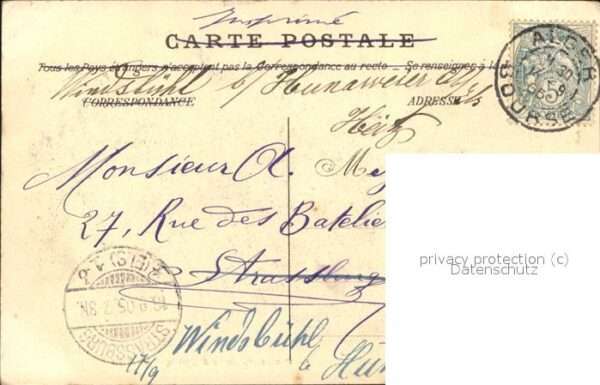 Imprimé
CARTE POSTALE
Tous les Pays étrangers n'acceptent pas la Correspondance au recto — Se renseigner à la
Windsbühl b/ Hunaweier
CORRESPONDANCE ADRESSE
Monsieur A. Mey
27, Rue des Batelie
Strassburg
Windsbühl
17/9 a Hun
ALGER
BOURSE
5
STRASSBURG
privacy protection (c)
Datenschutz